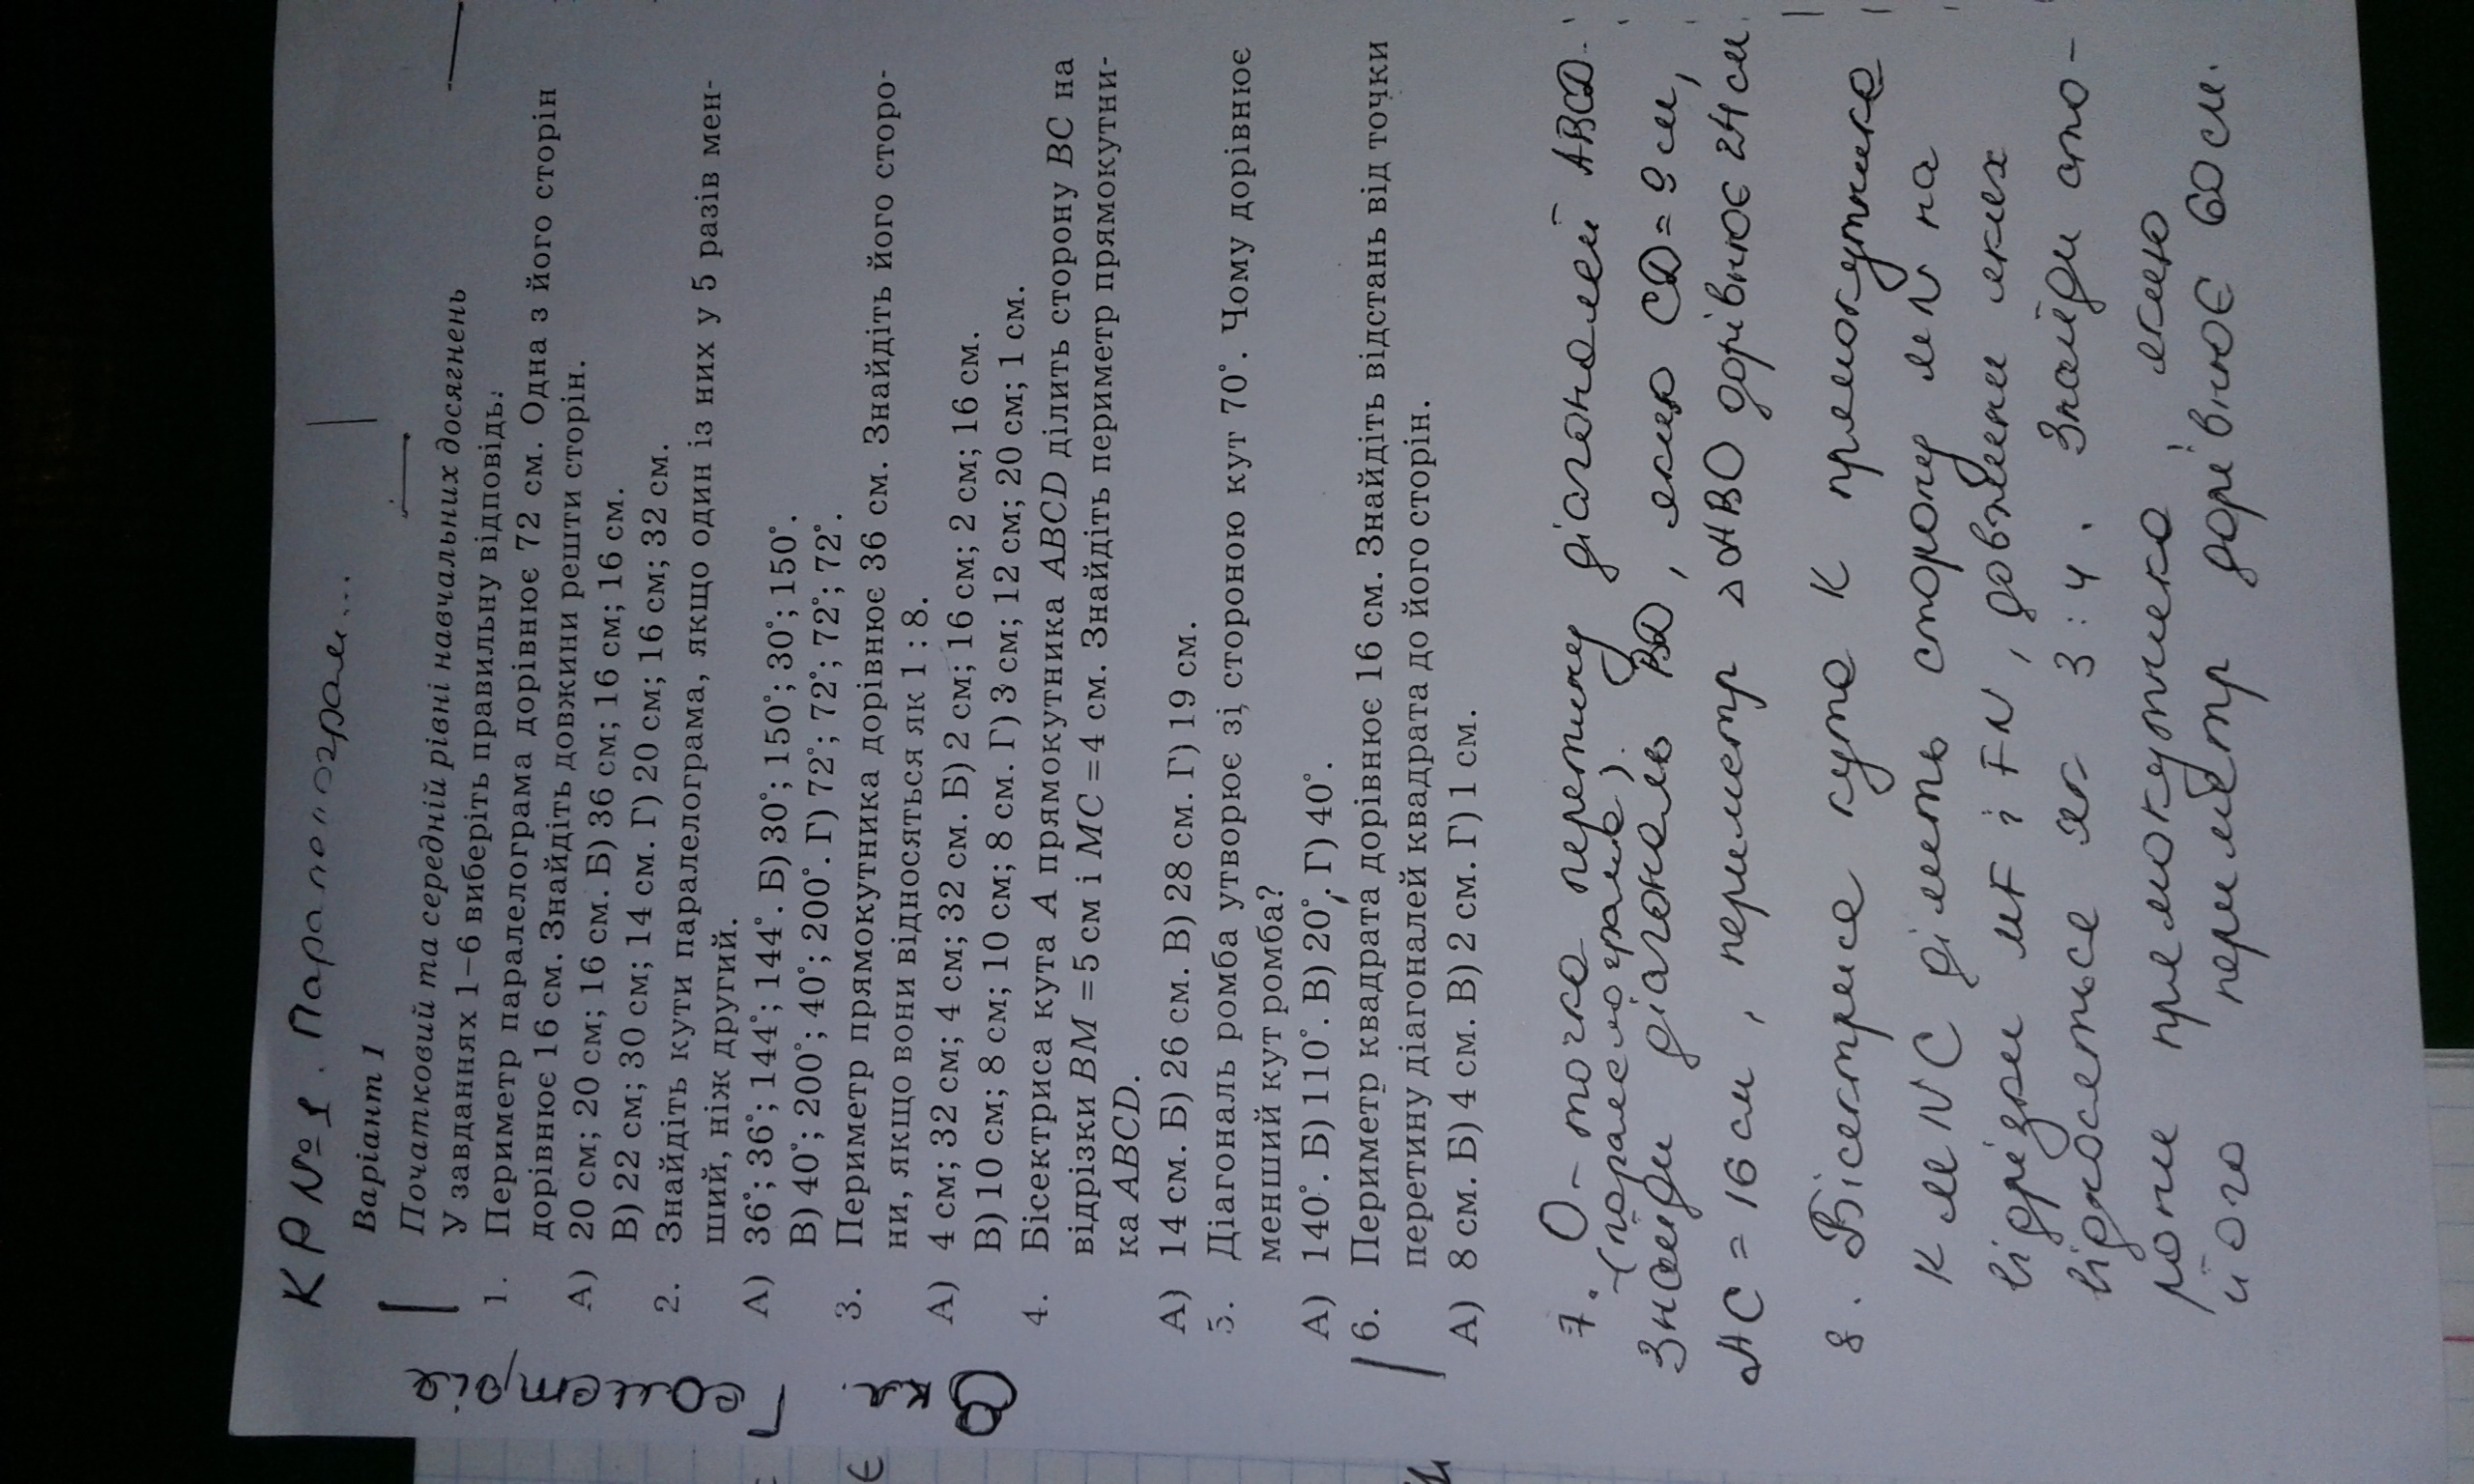 КР №1. Паралелограм...
Варіант 1
Початковий та середній рівні навчальних досягнень
У завданнях 1–6 виберіть правильну відповідь.
1. Периметр паралелограма дорівнює 72 см. Одна з його сторін
дорівнює 16 см. Знайдіть довжини решти сторін.
А) 20 см; 20 см; 16 см. Б) 36 см; 16 см; 16 см.
В) 22 см; 30 см; 14 см. Г) 20 см; 16 см; 32 см.
2. Знайдіть кути паралелограма, якщо один із них у 5 разів мен-
ший, ніж другий.
А) 36°; 36°; 144°; 144°. Б) 30°; 150°; 30°; 150°.
В) 40°; 200°; 40°; 200°. Г) 72°; 72°; 72°; 72°.
3. Периметр прямокутника дорівнює 36 см. Знайдіть його сторо-
ни, якщо вони відносяться як 1 : 8.
А) 4 см; 32 см; 4 см; 32 см. Б) 2 см; 16 см; 2 см; 16 см.
В) 10 см; 8 см; 10 см; 8 см. Г) 3 см; 12 см; 20 см; 1 см.
4. Бісектриса кута А прямокутника ABCD ділить сторону BC на
відрізки BM = 5 см і MC = 4 см. Знайдіть периметр прямокутни-
ка ABCD.
А) 14 см. Б) 26 см. В) 28 см. Г) 19 см.
5. Діагональ ромба утворює зі стороною кут 70°. Чому дорівнює
менший кут ромба?
А) 140°. Б) 110°. В) 20°. Г) 40°.
6. Периметр квадрата дорівнює 16 см. Знайдіть відстань від точки
перетину діагоналей квадрата до його сторін.
А) 8 см. Б) 4 см. В) 2 см. Г) 1 см.
7. О - точка перетину діагоналей ABCD.
(паралелограмів).
Знайди діагональ BD, якщо CD = 9 см,
AC = 16 см, периметр △ABO дорівнює 24 см.
8. Бісектриса кута К прямокутника
KMNC ділить сторону MN на
відрізки MF і FN, довжини яких
відносяться як 3 : 4. Знайди сто-
рони прямокутника, якщо
його периметр дорівнює 60 см.